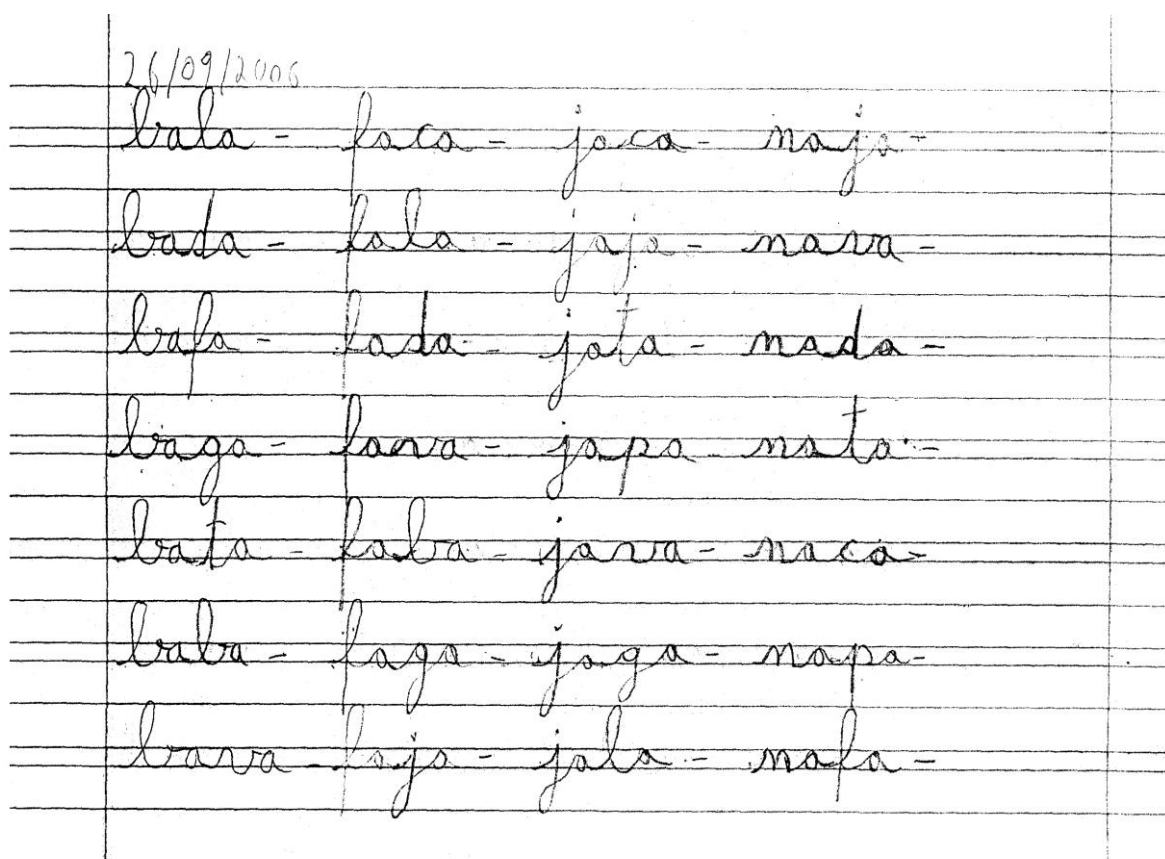 26/09/2006
bala - faca - jaca - naja -
bada - fala - jaja - nava -
bafa - fada - jata - nada -
baga - fava - japa - nata -
bata - faba - java - naca -
baba - faga - jaga - napa -
bava - faja - jala - nafa -